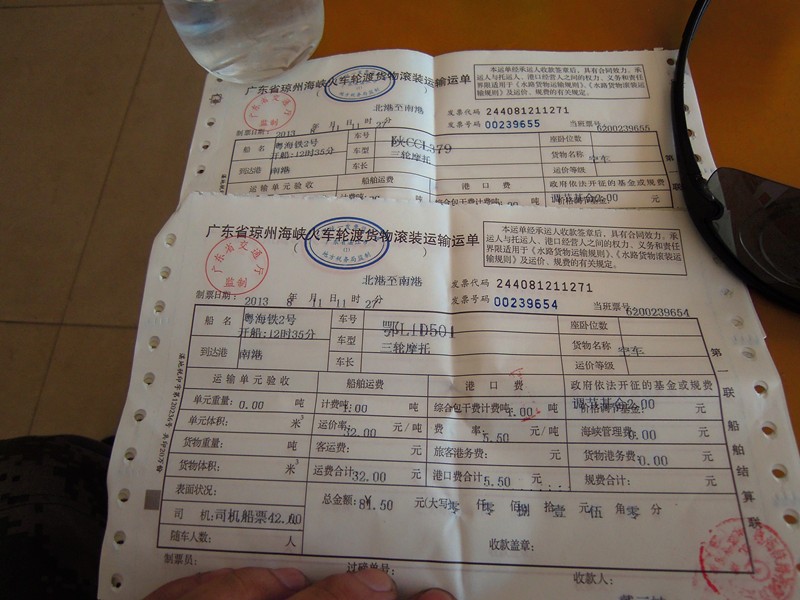 广东省琼州海峡火车轮渡货物滚装运输运单
本运单经承运人收款签章后，具有合同效力，承运人与托运人、港口经营人之间的权力、义务和责任界限适用于《水路货物运输规则》、《水路货物滚装运输规则》及运价、规费的有关规定。
广东省交通厅
监制
北港至南港
发票代码 244081211271
发票号码 00239655
当班票号 6200239655
制票日期： 2013 年 8 月 11 日 11 时 27 分
船名 粤海铁2号
开船:12时35分
车号 陕CCL379
车型 三轮摩托
车长
座卧位数
货物名称 空车
运价等级
到达港 南港
运输单元验收 船舶运费 港口费 政府依法开征的基金或规费
广东省琼州海峡火车轮渡货物滚装运输运单
本运单经承运人收款签章后，具有合同效力，承运人与托运人、港口经营人之间的权力、义务和责任界限适用于《水路货物运输规则》、《水路货物滚装运输规则》及运价、规费的有关规定。
广东省交通厅
监制
北港至南港
发票代码 244081211271
发票号码 00239654
当班票号 6200239654
制票日期： 2013 年 8 月 11 日 11 时 27 分
船名 粤海铁2号
开船:12时35分
车号 鄂L1D501
车型 三轮摩托
车长
座卧位数
货物名称 空车
运价等级
到达港 南港
运输单元验收 船舶运费 港口费 政府依法开征的基金或规费
单元重量： 0.00 吨 计费吨 1.00 综合包干费计费吨 1.00 价格调节基金： 调节基金2.00 元
单元体积： 米3 运价率： 32.00 元/吨 费率： 5.50 元/吨 海峡管理费： 0.00 元
货物重量： 吨 客运费： 元 旅客港务费： 元 货物港务费： 0.00 元
货物体积： 米3 运费合计： 32.00 元 港口费合计： 5.50 元 规费合计： 元
表面状况：
总金额：￥ 81.50 元(大写) 零 仟 零 佰 捌 拾 壹 元 伍 角 零 分
司机： 司机船票42.00
随车人数： 人
收款盖章：
制票员： 过磅单号： 收款人：
第一联 船舶结算联